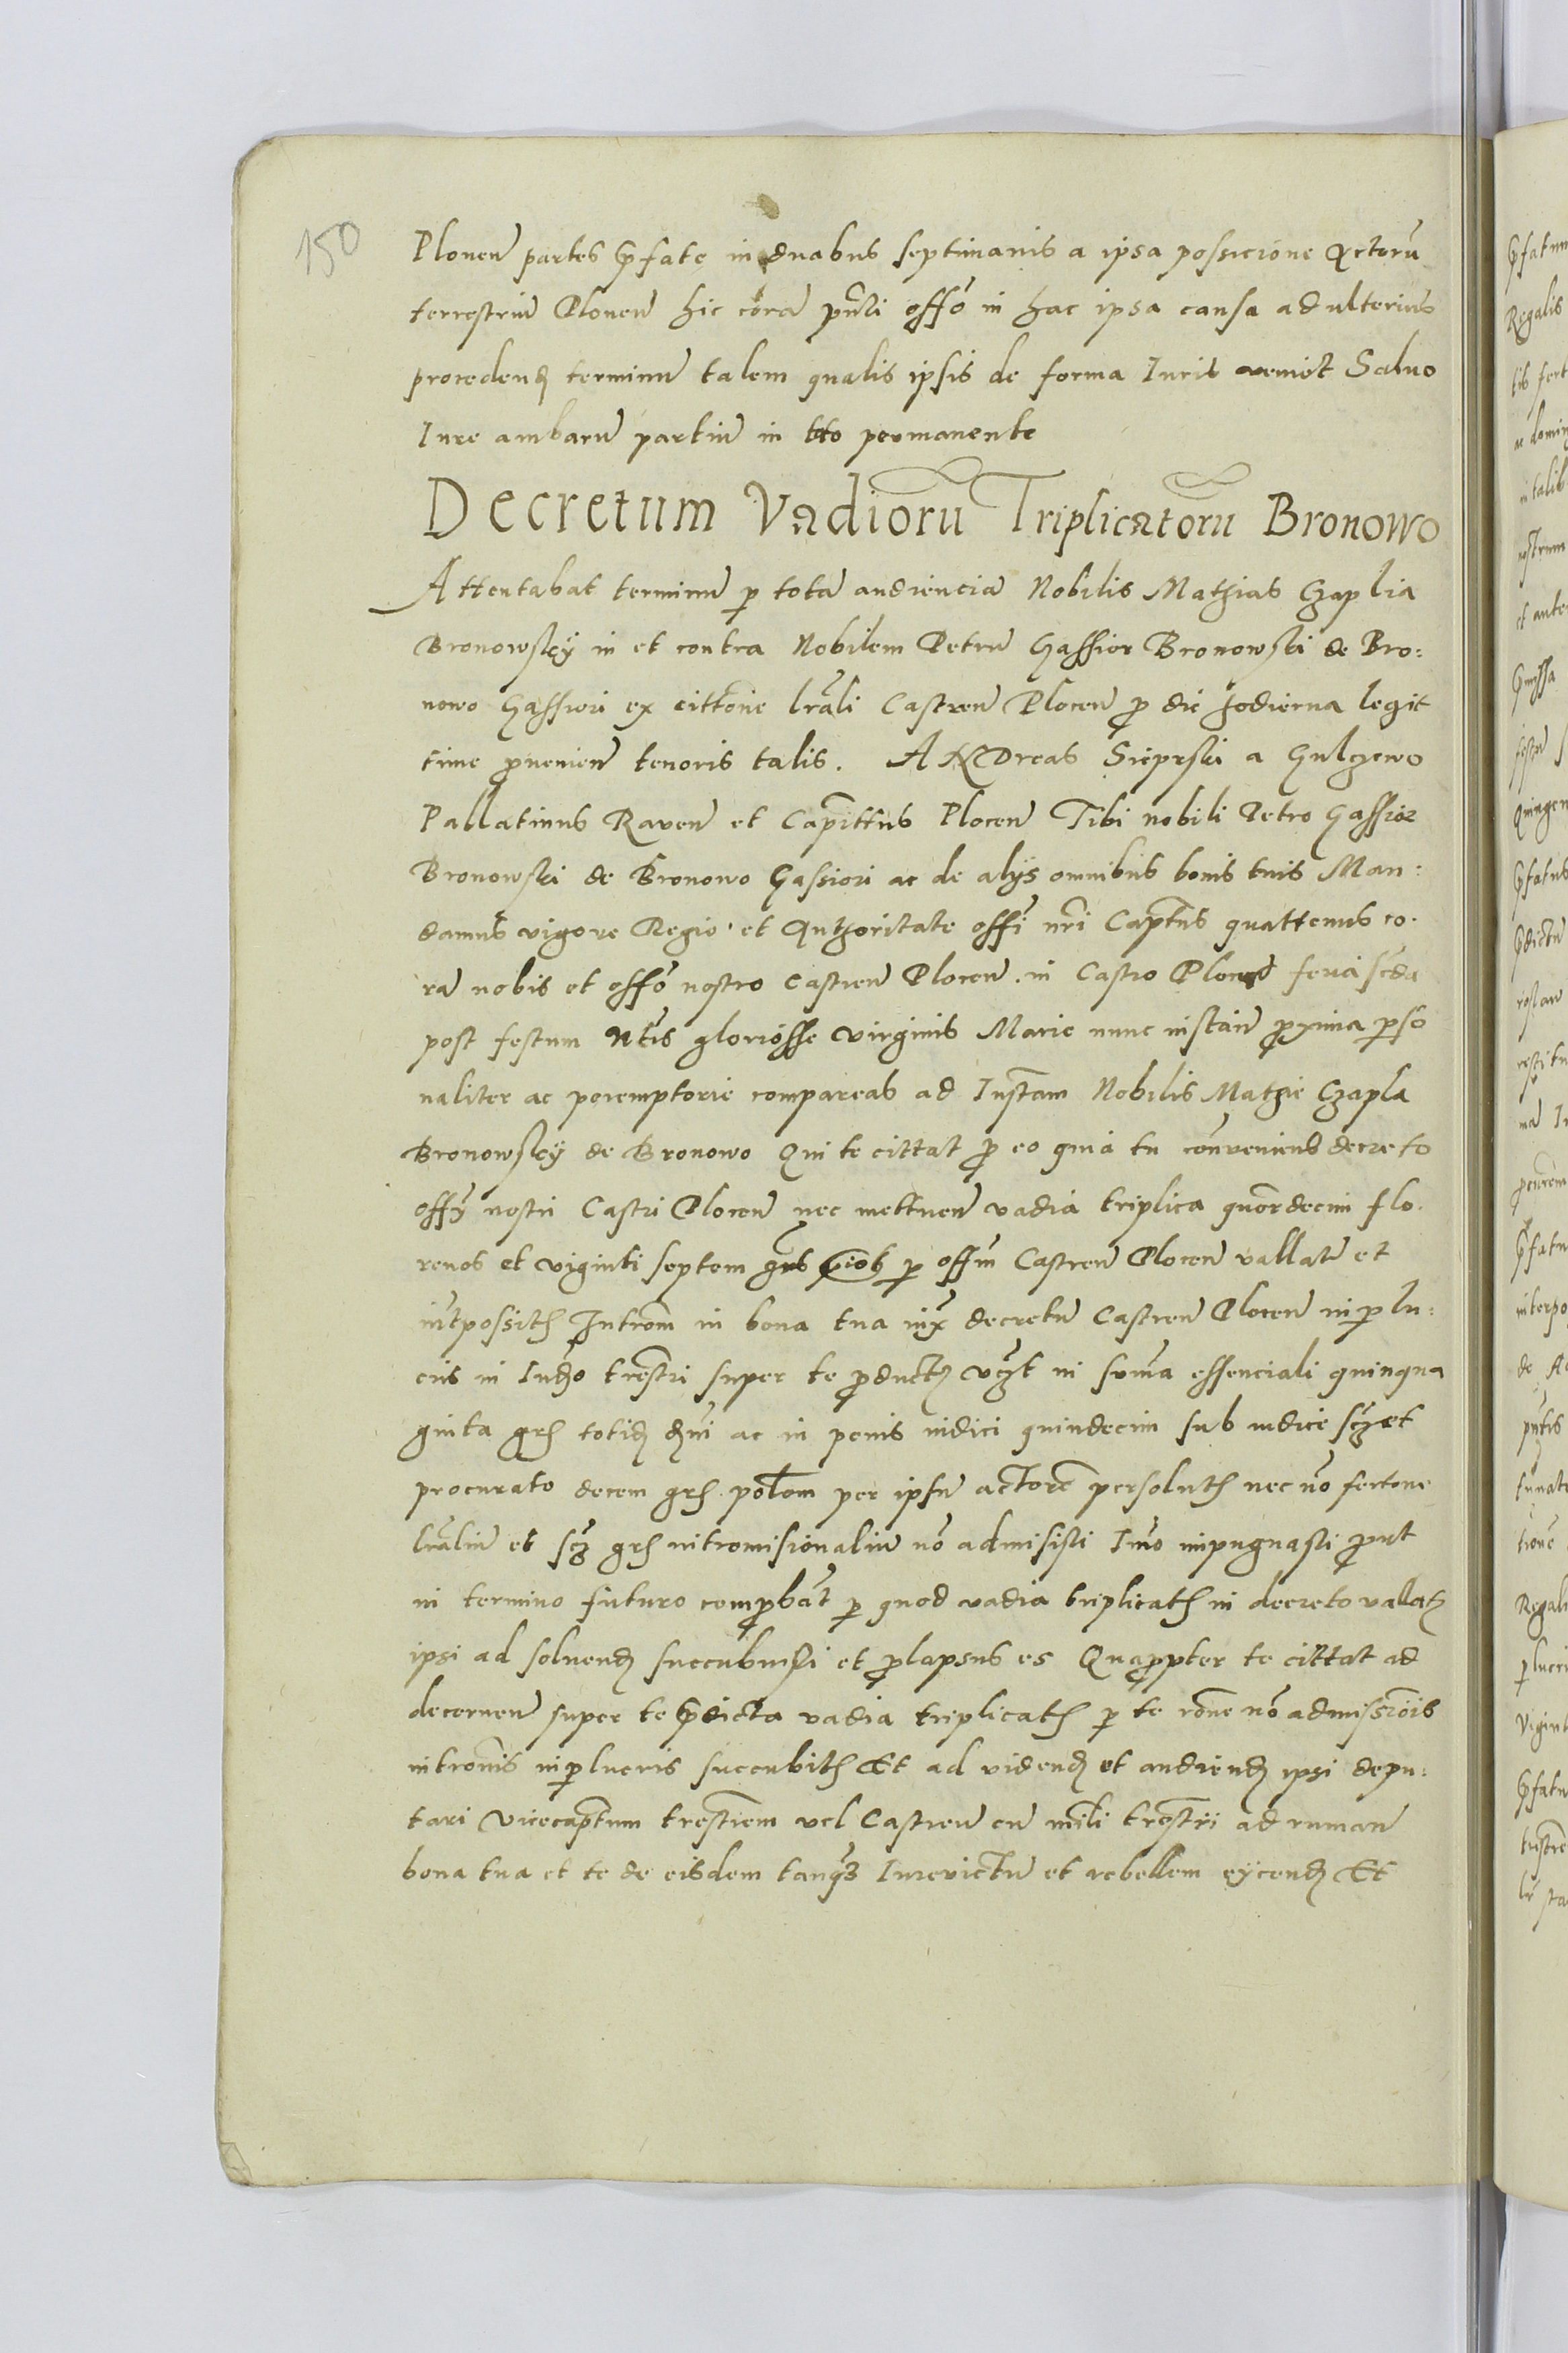 150
Plonen̄ partes p̄fate in duabus septimanis a ipsa possicione Actorū
terrestriū Plonen̄ hic corā pn̄ti offō in hac ipsa causa ad ulterius
procedend̄ terminū talem qualis ipsis de forma Iuris veniet Salvo
Iure ambarū partiū in tto permanente
Decretum Vadiorū Triplicatorū Bronowo
Attentabat terminū p totā audienciā Nobilis Mathias Czaplia
Bronowsky in et contra Nobilem Petrū Gassior Bronowski de Bro:
nowo Gassiori ex cittōne lr̄ali Castren̄ Plocen̄ p die hodierna legit
time p̄venien̄ tenoris talis. ANDreas Sieprski a Gulczewo
Pallatinus Raven̄ et Capitt̄us Plocen̄ Tibi nobili Petro Gassior
Bronowski de Bronowo Gassiori ac de alys omnibus bonis tuis Man:
damus vigore Regio et Authoritate offī nr̄i Capt̄us quattenus co.
rā nobis et offō nostro Castren̄ Plocen̄ in Castro Plocen̄ feria sc̄da
post festum Nt̄is gloriosse virginis Marie nunc instān̄ proxima p̄so
naliter ac peremptorie compareas ad Inst̄am Nobilis Mathie Czapla
Bronowsky de Bronowo Qui te cittat p eo quia tu cōnveniens decreto
offȳ nostri Castri Plocen̄ nec mettuen̄ vadia triplica quordecim flo.
renos et viginti septem p offm̄ Castren̄ Plocen̄ vallatē et
int̄possit̄ Introm̄ in bona tua iux̄ decretū Castren̄ Plocen̄ in p lu:
cris in Iud̄o trēstri super te p̄duct̄ vc̄zt in sum̄a essenciali quinqua
ginta gr̄ totid̄ ac in penis iudici quindecim sub iudice sc̄z et
procurato decem gr̄ pol̄em per ipsū actorē persolut̄ nec nō fertone
lr̄aliū et sc̄z gr̄ intromisionaliū nō admisisti Im̄o impugnasti p̄ut
in termino futuro comp̄bāt p quod vadia triplicat̄ in decreto vallat̄
ipsi ad solvend̄ succubuisti et p̄lapsus es Quap̄pter te cittat ad
decernen̄ super te p̄dicta vadia triplicat̄ p te rōne nō admissiōis
intromis̄ in p lucris succubit̄ Et ad videnđ et audienđ ipsi depu:
tari vicecapt̄um trēstrem vel Castren̄ cū mil̄i trēstri ad ruman̄
bona tua et te de eisdem tanq̄ Iurevictū et rebellem eycend̄ Et